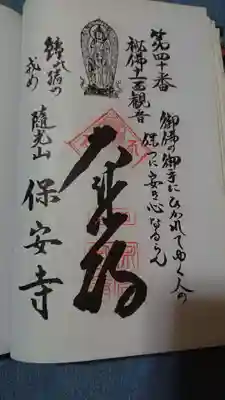 第四十番
秘佛十一面観音
御佛の御手にひかれてゆく人の
保つに安き心なるらん
大悲殿
随光山
保安寺